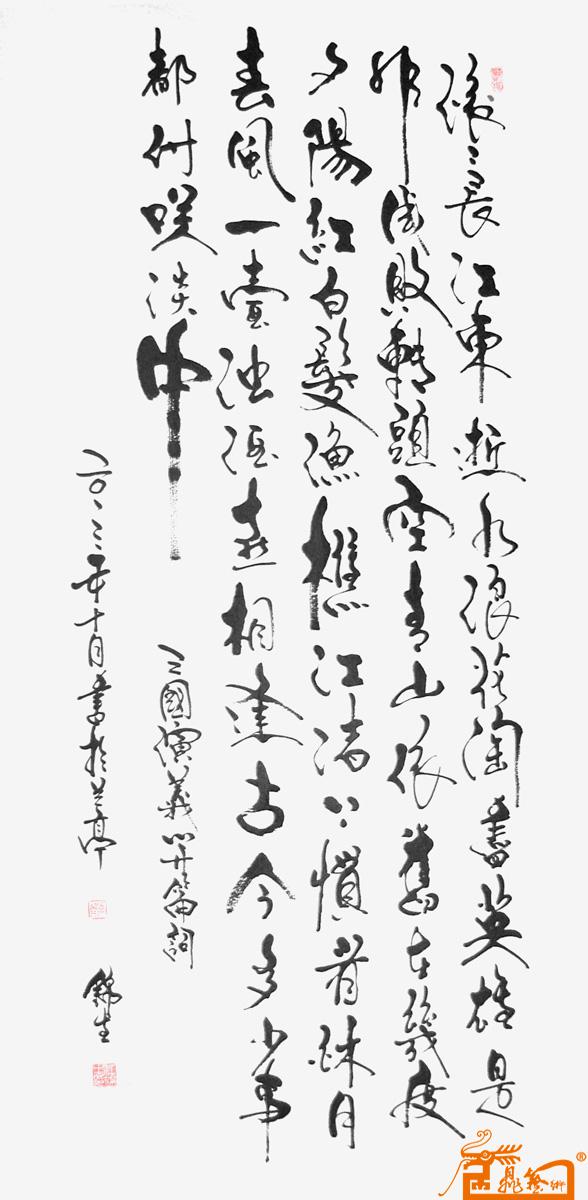 滚滚長江東逝水浪花淘盡英雄是
非成敗轉頭空青山依舊在幾度
夕陽紅白髮漁樵江渚上慣看秌月
春風一壺濁酒喜相逢古今多少事
都付咲談中
三國演義開篇詞
二〇一三年十月書於兰亭
錦生